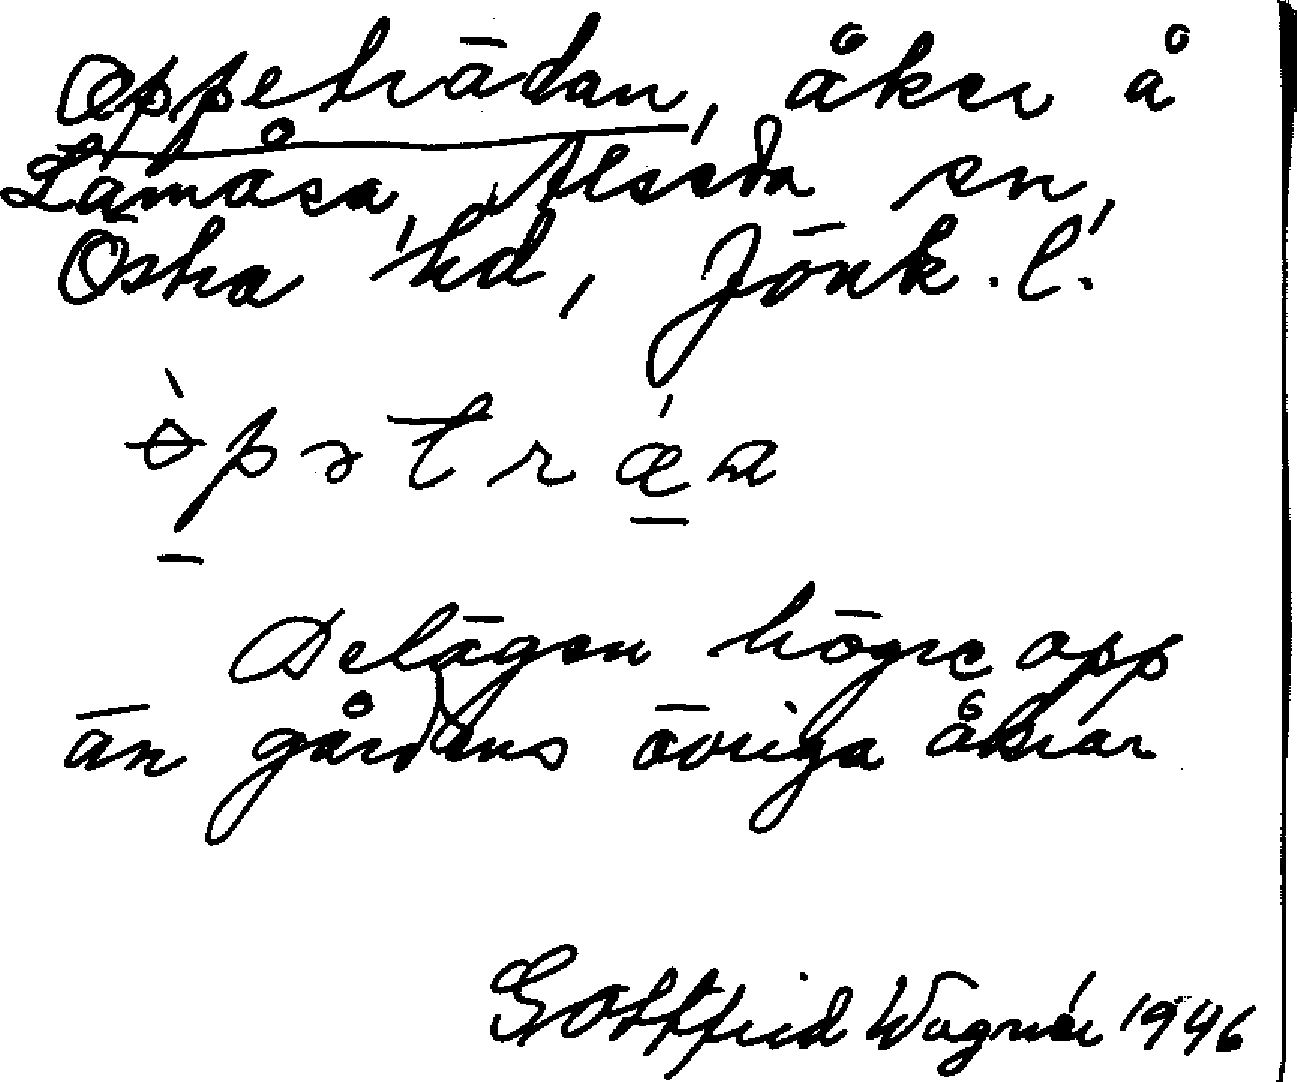 Oppeträdan, åker å
Lamåsa, Alseda sn,
Östra hd, Jönk. l.
ɵ̀pətrǽa
Delägen högre opp
än gårdens övriga åkrar
Gottfrid Wagnér 1946